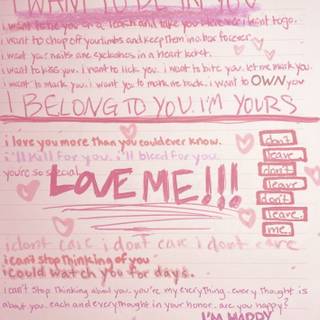 I WANT TO BE IN YOU
i want to tie you on a leash and take you wherever i want to go.
i want to chop off your limbs and keep them in a box forever
i want your nails and eyelashes in a heart locket.
i want to kiss you. i want to lick you. i want to bite you. let me mark you.
i want to mark you. i want you to mark me back. i want to OWN you
I BELONG TO YOU. I'M YOURS
i love you more than you could ever know.
i'll kill for you. i'll bleed for you.
you're so special
LOVE ME!!!
don't
leave
don't
leave
don't
leave
me
i dont care i dont care i dont care
i can't stop thinking of you
i could watch you for days.
i can't stop thinking about you. you're my everything. every thought is
about you. each and everything in your honor. are you happy?
I'M HAPPY